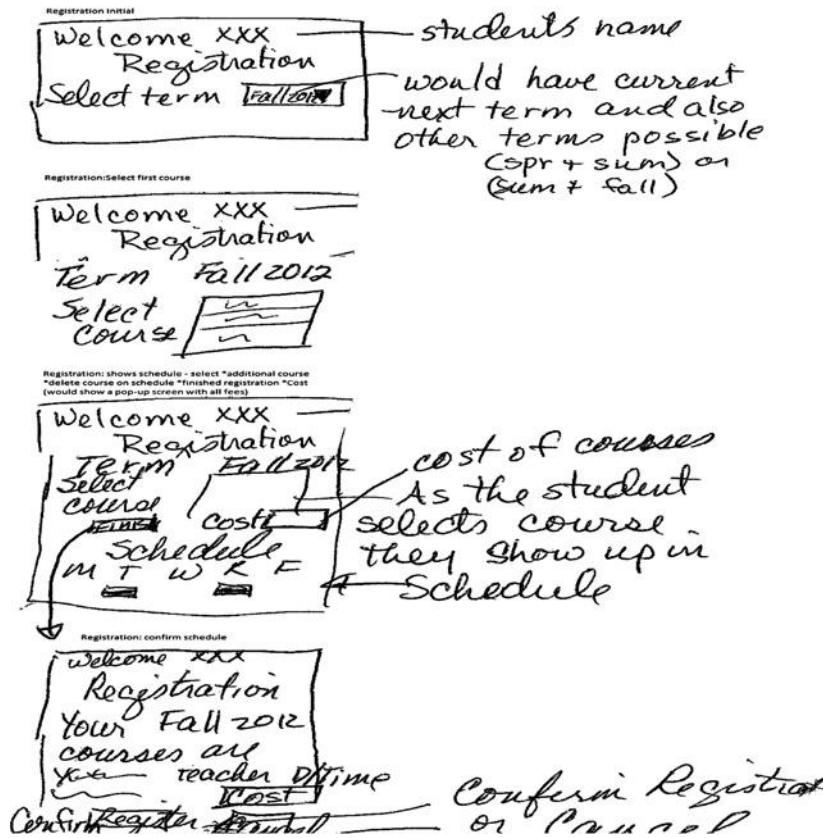 Registration Initial
Welcome XXX
Registration
Select term Fall 2012
students name
would have current
next term and also
other terms possible
(spr + sum) or
(sum + fall)
Registration:Select first course
Welcome XXX
Registration
Term Fall 2012
Select
course
Registration: shows schedule - select *additional course
*delete course on schedule *finished registration *Cost
(would show a pop-up screen with all fees)
Welcome XXX
Registration
Term Fall 2012
Select
course
Cost
Schedule
M T W R F
cost of courses
As the student
selects course
they show up in
Schedule
Registration: confirm schedule
Welcome XXX
Registration
Your Fall 2012
courses are
teacher D/Time
Cost
Confirm Register
Confirm Registration
or Cancel